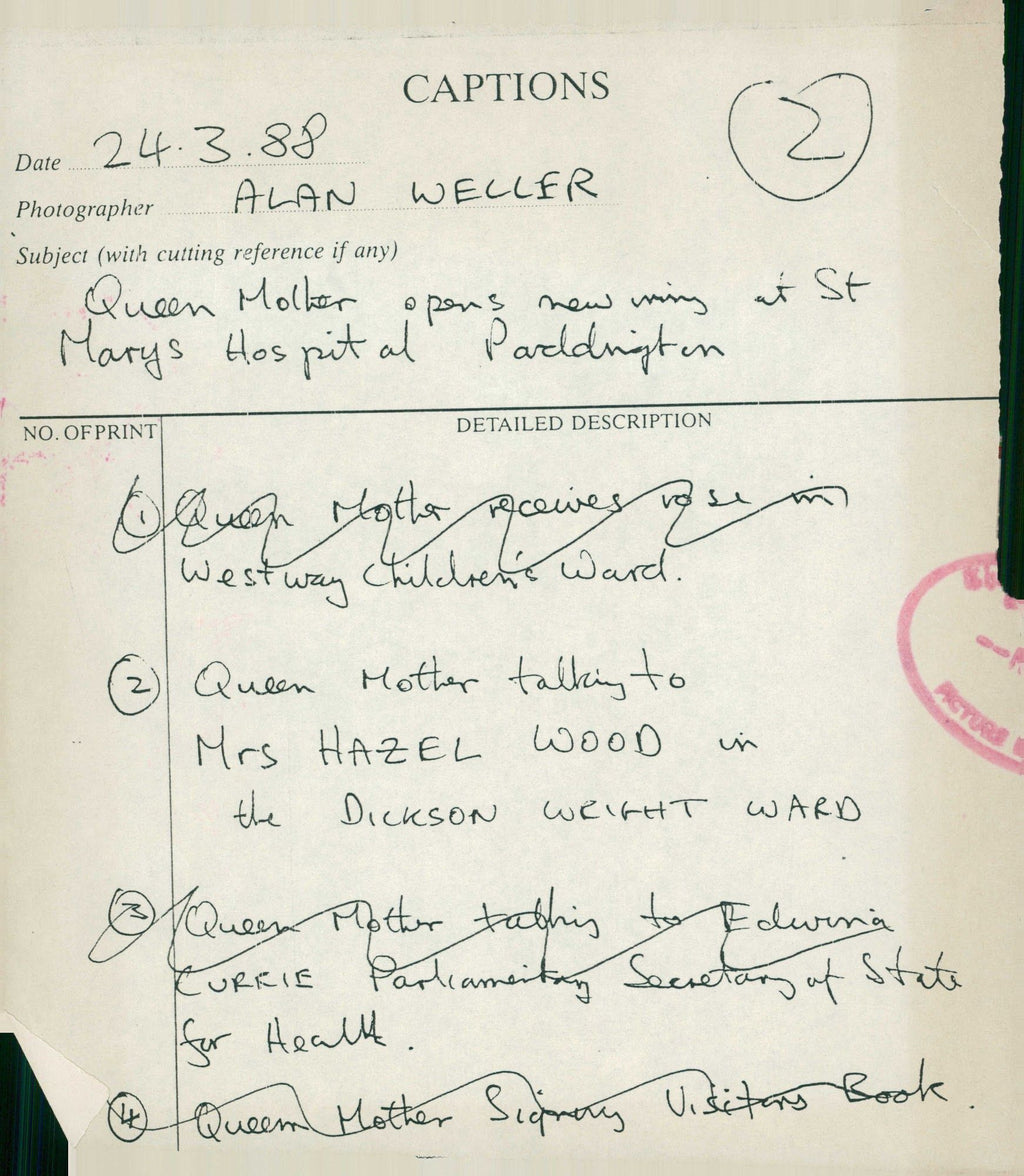 CAPTIONS
2
Date 24.3.88
Photographer ALAN WELLER
Subject (with cutting reference if any)
Queen Mother opens new wing at St
Marys Hospital Paddington
NO. OF PRINT DETAILED DESCRIPTION
1 Queen Mother receives rose in
Westway Children's Ward.
2 Queen Mother talking to
Mrs HAZEL WOOD in
the DICKSON WRIGHT WARD
3 Queen Mother talking to Edwina
CURRIE Parliamentary Secretary of State
for Health.
4 Queen Mother Signing Visitors Book.
PICTURE